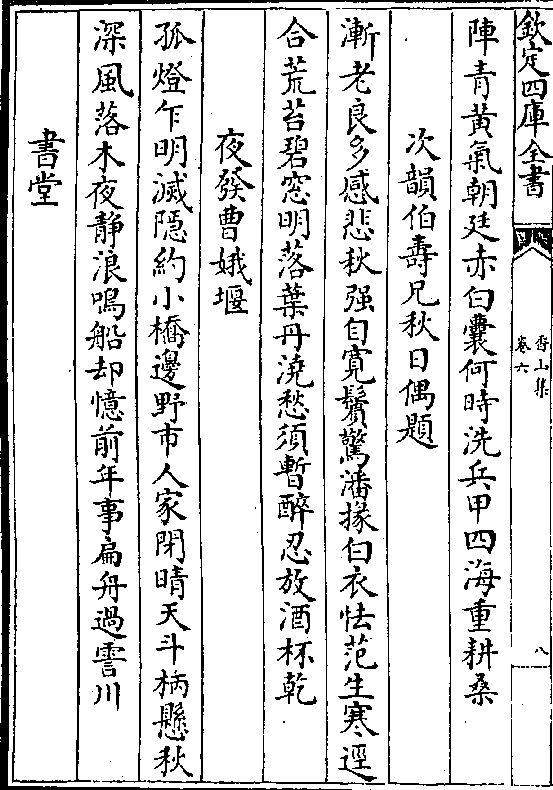 欽定四庫全書
香山集
卷六
八
陣青黃氣朝廷赤白囊何時洗兵甲四海重耕桑
次韻伯壽兄秋日偶題
漸老良多感悲秋强自寛鬢驚潘掾白衣怯范生寒逕
合荒苔碧窓明落葉丹澆愁須暫醉忍放酒杯乾
夜發曹娥堰
孤燈乍明滅隠約小橋邊野市人家閉晴天斗柄懸秋
深風落木夜静浪鳴船却憶前年事扁舟過霅川
書堂